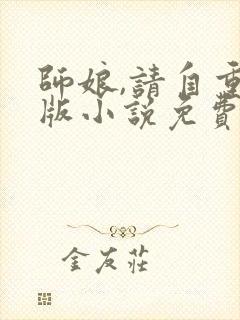 師娘,請自重
版小說免費
金友莊